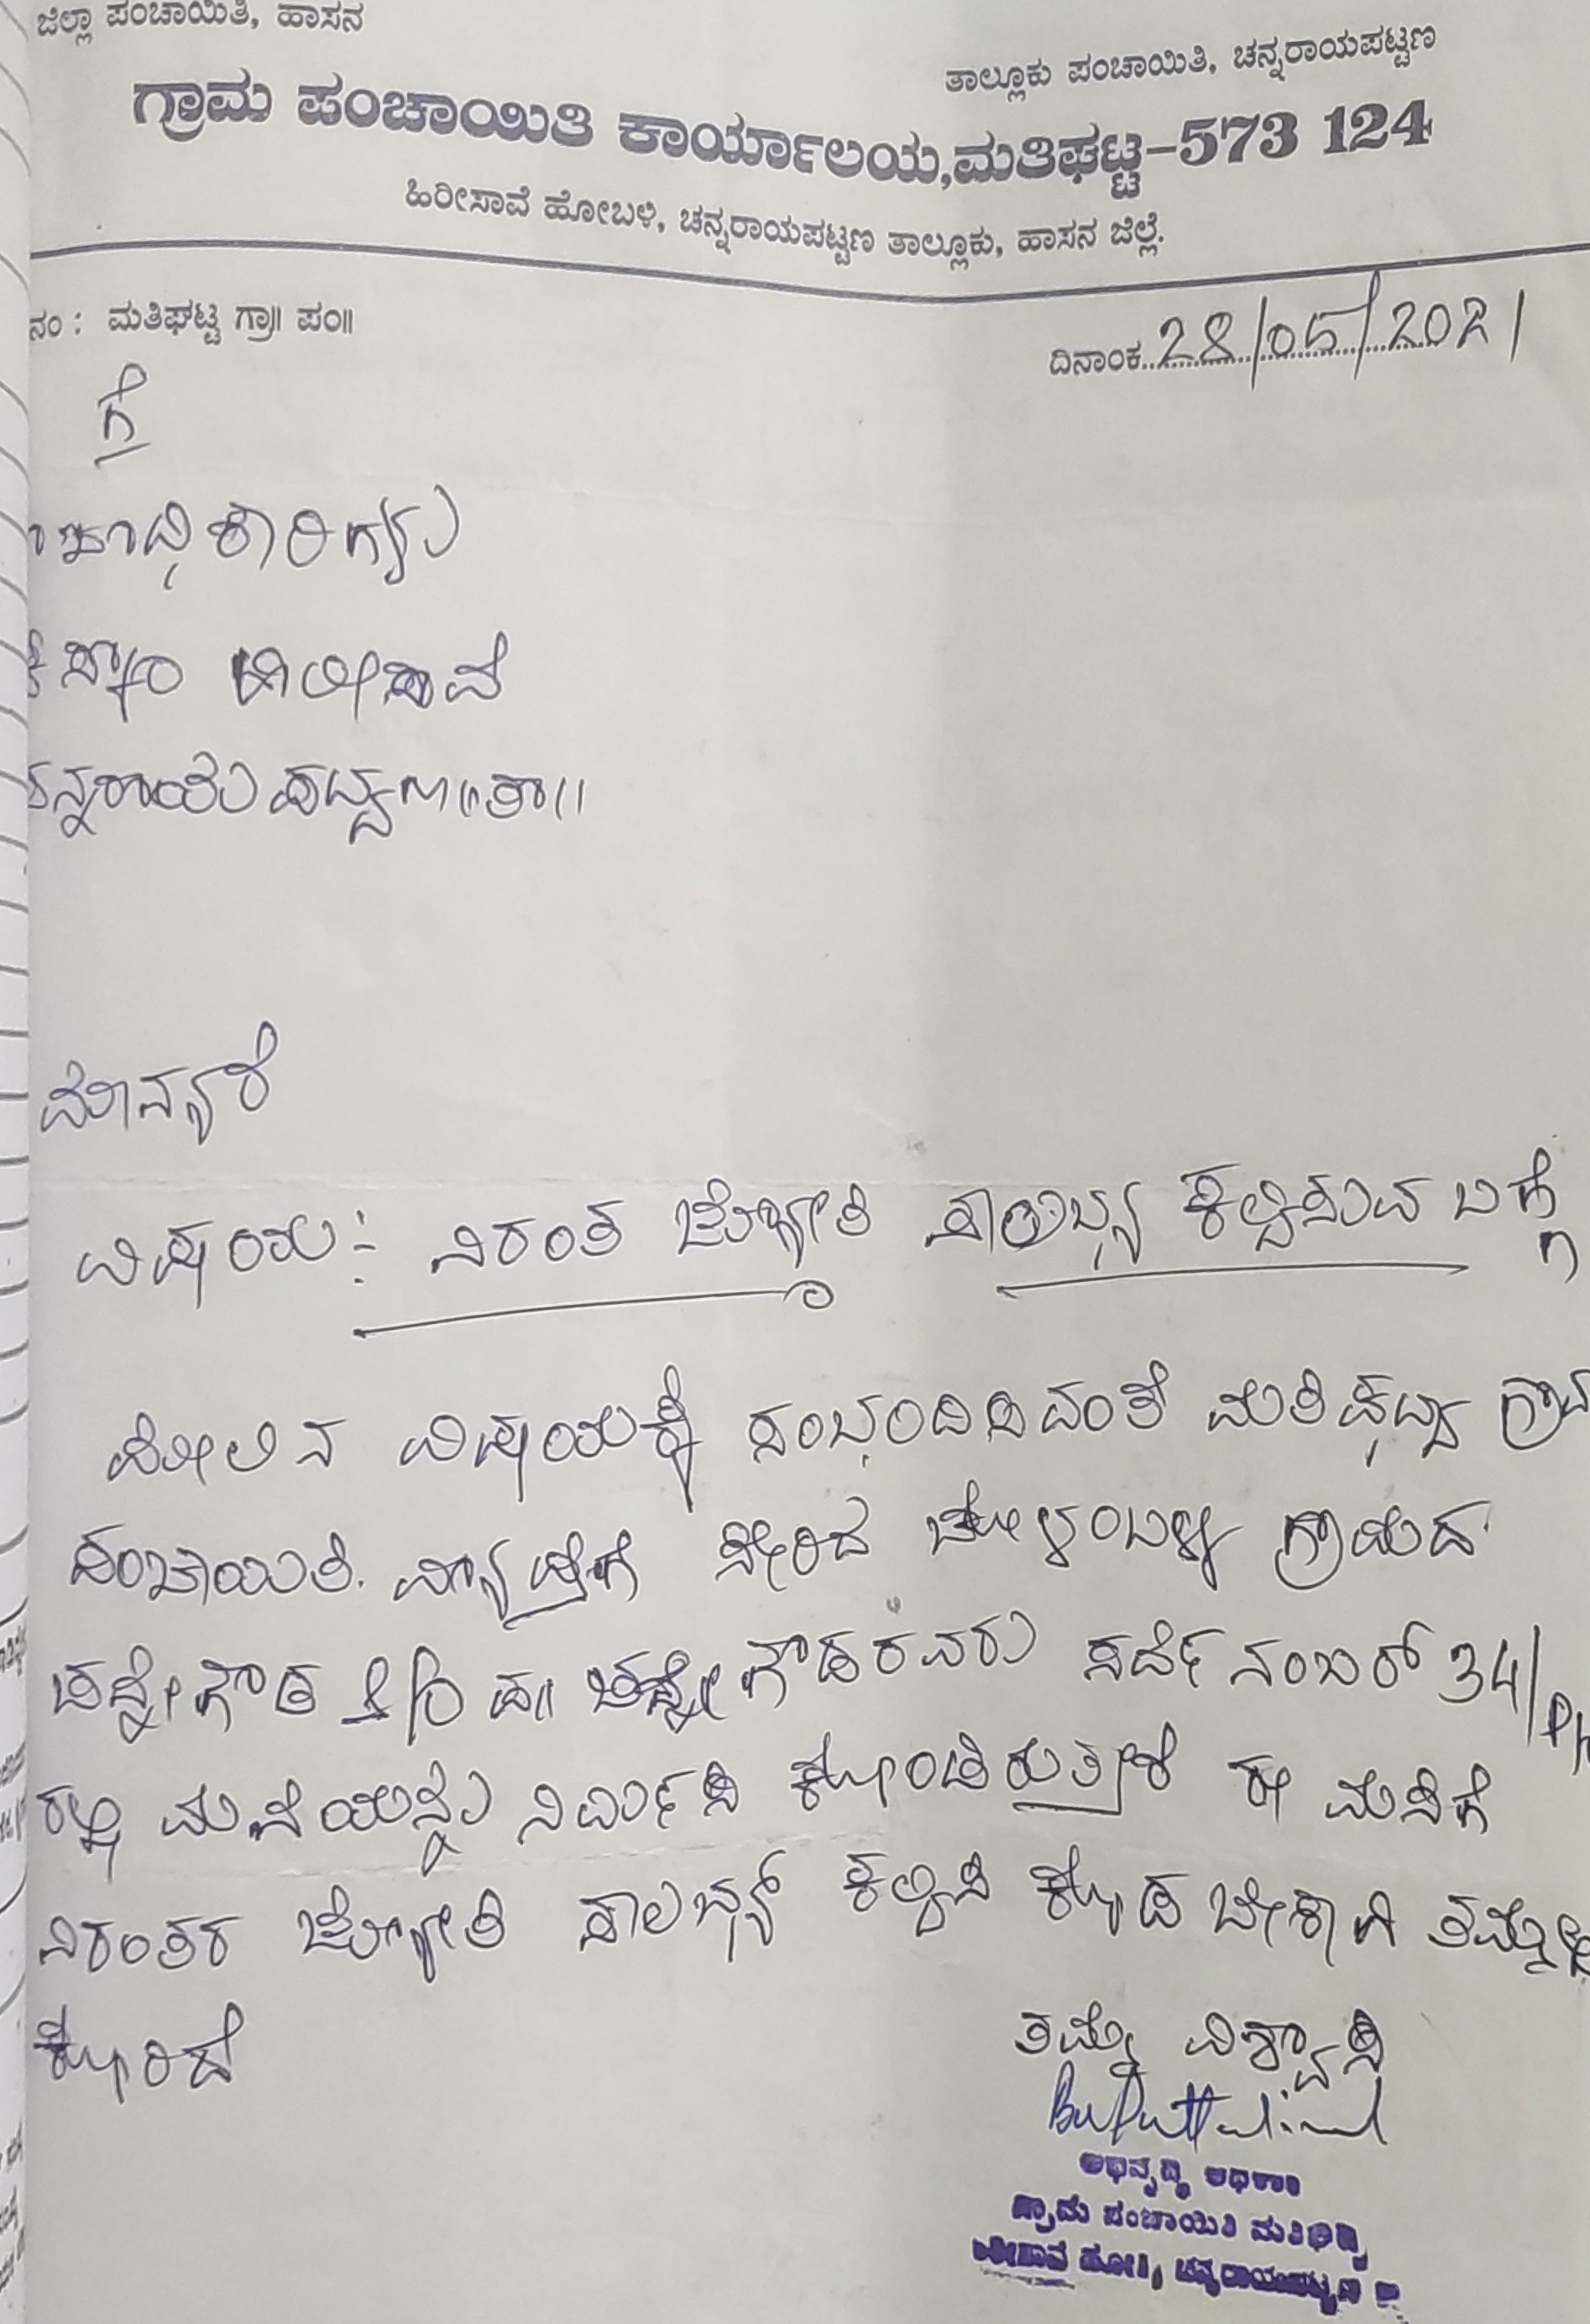 ಜಿಲ್ಲಾ ಪಂಚಾಯಿತಿ, ಹಾಸನ
ತಾಲ್ಲೂಕು ಪಂಚಾಯಿತಿ, ಚನ್ನರಾಯಪಟ್ಟಣ
ಗ್ರಾಮ ಪಂಚಾಯಿತಿ ಕಾರ್ಯಾಲಯ,ಮತಿಘಟ್ಟ-573 124
ಹಿರೀಸಾವೆ ಹೋಬಳಿ, ಚನ್ನರಾಯಪಟ್ಟಣ ತಾಲ್ಲೂಕು, ಹಾಸನ ಜಿಲ್ಲೆ.
ನಂ : ಮತಿಘಟ್ಟ ಗ್ರಾ॥ ಪಂ॥
ದಿನಾಂಕ 28/05/2021
ಗೆ
ಹಿರೀಸಾವೆ
ಚನ್ನರಾಯಪಟ್ಟಣ ॥ತಾ॥
ಮಾನ್ಯರೆ
ವಿಷಯ :- ನಿರಂತ ಜ್ಯೋತಿ ಸಾಲಭ್ಯ ಕಲ್ಪಿಸುವ ಬಗ್ಗೆ
ಮೇಲಿನ ವಿಷಯಕ್ಕೆ ಸಂಬಂದಿಸಿದಂತೆ ಮತಿಘಟ್ಟ ಗ್ರಾಮ
ಪಂಚಾಯಿತಿ. ವ್ಯಾಪ್ತಿಗೆ ಸೇರಿದ ಚೋಳಂಬಳ್ಳಿ ಗ್ರಾಮದ
ಚನ್ನೇಗೌಡ S/o ಚನ್ನೇಗೌಡರವರು ಸರ್ವೆ ನಂಬರ್ 34/
ರಲ್ಲಿ ಮನೆಯನ್ನು ನಿರ್ಮಿಸಿ ಕೊಂಡಿರುತ್ತಾರೆ ಈ ಮನೆಗೆ
ನಿರಂತರ ಜ್ಯೋತಿ ಸಾಲಭ್ಯ ಕಲ್ಪಿಸಿ ಕೊಡ ಬೇಕಾಗಿ ತಮ್ಮಲ್ಲಿ
ಕೋರಿದೆ
ತಮ್ಮ ವಿಶ್ವಾಸಿ
ಅಭಿವೃದ್ಧಿ ಅಧಿಕಾರಿ
ಗ್ರಾಮ ಪಂಚಾಯಿತಿ ಮತಿಘಟ್ಟ
ಹಿರೀಸಾವೆ ಹೋ॥, ಚನ್ನರಾಯಪಟ್ಟಣ